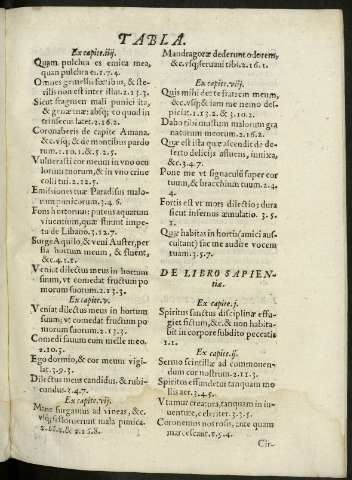 TABLA.
Ex capite.iiij.
Quam pulchra es amica mea,
quam pulchra es.1.7.4.
Omnes gemellis fœtibus, & ste-
rilis non est inter illas.2.13.3.
Sicut fragmen mali punici ita,
& genæ tuæ: absq; eo quod in
trinsecus latet.2.16.2.
Coronaberis de capite Amana.
&c.vsq; & de montibus pardo
rum.1.10.1.& 5.2.5.
Vulnerasti cor meum in vno ocu
lorum tuorum, & in vno crine
colli tui.2.12.5.
Emissiones tuæ Paradisus malo-
rum punicorum.3.4.6.
Fons hortorum: puteus aquarum
viuentium, quæ fluunt impe-
tu de Libano.3.12.7.
Surge Aquilo, & veni Auster, per
fla hortum meum, & fluent,
&c.4.1.1.
Veniat dilectus meus in hortum
suum, vt comedat fructum po
morum suorum.2.13.3.
Ex capite.v.
Veniat dilectus meus in hortum
suum, vt comedat fructum po
morum suorum.2.13.3.
Comedi fauum cum melle meo.
2.10.3.
Ego dormio, & cor meum vigi-
lat.3.9.3.
Dilectus meus candidus. & rubi-
cundus.4.1.7.
Ex capite.vij.
Mane surgamus ad vineas, &c.
vsq; si floruerunt mala punica.
2.16.2.& 2.16.8.
Mandragoræ dederunt odorem,
&c.vsq; seruaui tibi.2.16.1.
Ex capite.viij.
Quis mihi det te fratrem meum,
&c.vsq; & iam me nemo des-
piciat.1.13.2.& 3.10.2.
Dabo tibi mustum malorum gra
natorum meorum.2.16.2.
Quæ est ista quæ ascendit de de-
serto delicijs affluens, innixa,
&c.3.4.7.
Pone me vt signaculũ super cor
tuum, & bracchium tuum.2.4.
4.
Fortis est vt mors dilectio; dura
sicut infernus æmulatio. 3.5.
1.
Quæ habitas in hortis(amici aus-
cultant) fac me audire vocem
tuam.3.5.7.
DE LIBRO SAPIEN-
tiæ.
Ex capite.j.
Spiritus sanctus disciplinæ effu-
giet fictum,&c.& non habita-
bit in corpore subdito peccatis
1.1.
Ex capite.ij.
Sermo scintillæ ad commonen-
dum cor nostrum.2.11.3.
Spiritus effundetur tanquam mo
llis aer.3.4.5.
Vtamur creatura, tanquam in iu-
uentute, celeriter.3.3.5.
Coronemus nos rosis, ante quam
marcescant.2.9.4.
Cir-